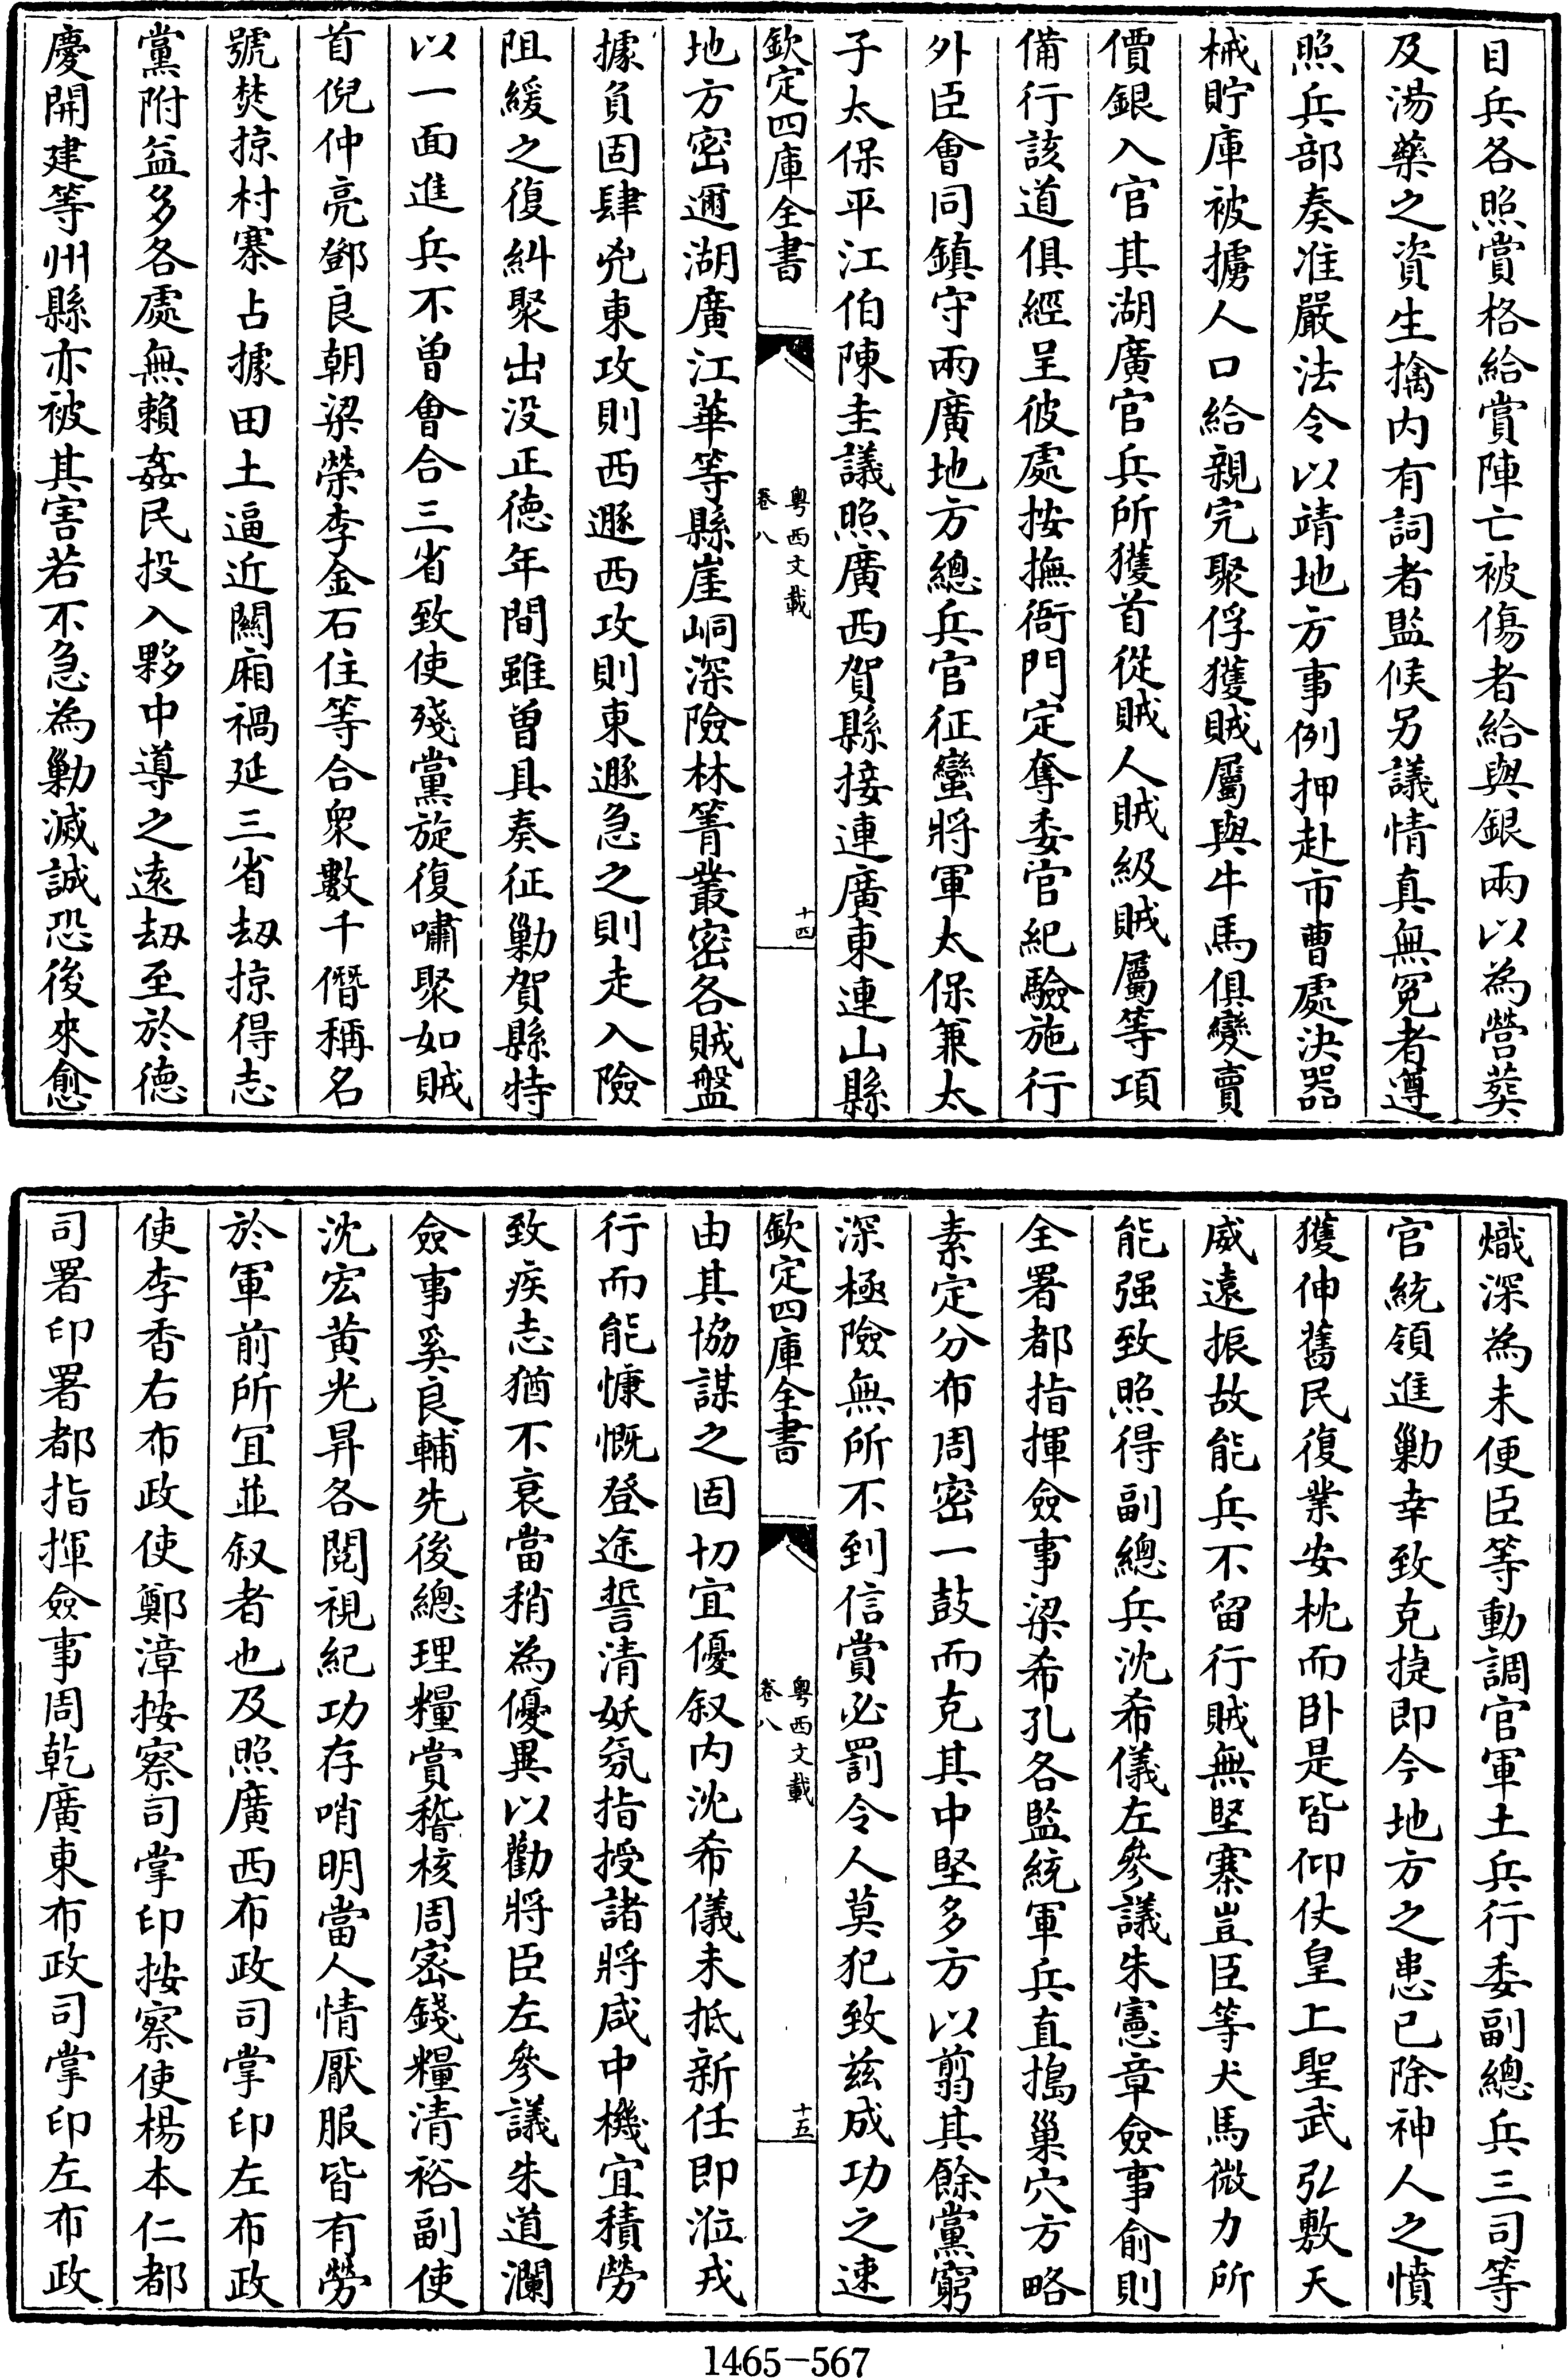 目兵各照賞格給賞陣亡被傷者給與銀兩以為營葬
及湯藥之資生擒内有詞者監候另議情真無冤者遵
照兵部奏准嚴法令以靖地方事例押赴市曹處決器
械貯庫被擄人口給親完聚俘獲賊屬與牛馬俱變賣
價銀入官其湖廣官兵所獲首從賊人賊級賊屬等項
備行該道俱經呈彼處按撫衙門定奪委官紀驗施行
外臣會同鎮守兩廣地方總兵官征蠻將軍太保兼太
子太保平江伯陳圭議照廣西賀縣接連廣東連山縣
欽定四庫全書
粤西文載
卷八
十四
地方密邇湖廣江華等縣崖峒深險林箐叢密各賊盤
據負固肆兇東攻則西遯西攻則東遯急之則走入險
阻緩之復糾聚出没正德年間雖曾具奏征勦賀縣特
以一面進兵不曾會合三省致使殘黨旋復嘯聚如賊
首倪仲亮鄧良朝梁榮李金石住等合衆數千僭稱名
號焚掠村寨占據田土逼近關廂禍延三省刼掠得志
黨附益多各處無賴姦民投入夥中導之遠刼至於德
慶開建等州縣亦被其害若不急為勦滅誠恐後來愈
熾深為未便臣等動調官軍土兵行委副總兵三司等
官統領進勦幸致克捷即今地方之患已除神人之憤
獲伸舊民復業安枕而卧是皆仰仗皇上聖武弘敷天
威遠振故能兵不留行賊無堅寨豈臣等犬馬微力所
能强致照得副總兵沈希儀左參議朱憲章僉事俞則
全署都指揮僉事梁希孔各監統軍兵直搗巢穴方略
素定分布周密一鼓而克其中堅多方以翦其餘黨窮
深極險無所不到信賞必罰令人莫犯致兹成功之速
欽定四庫全書
粤西文載
卷八
十五
由其協謀之固切宜優叙内沈希儀未抵新任即涖戎
行而能慷慨登途誓清妖氛指授諸將咸中機宜積勞
致疾志猶不衰當稍為優異以勸將臣左參議朱道瀾
僉事奚良輔先後總理糧賞稽核周密錢糧清裕副使
沈宏黄光昇各閲視紀功存哨明當人情厭服皆有勞
於軍前所宜並叙者也及照廣西布政司掌印左布政
使李香右布政使鄭漳按察司掌印按察使楊本仁都
司署印署都指揮僉事周乾廣東布政司掌印左布政
1465-567